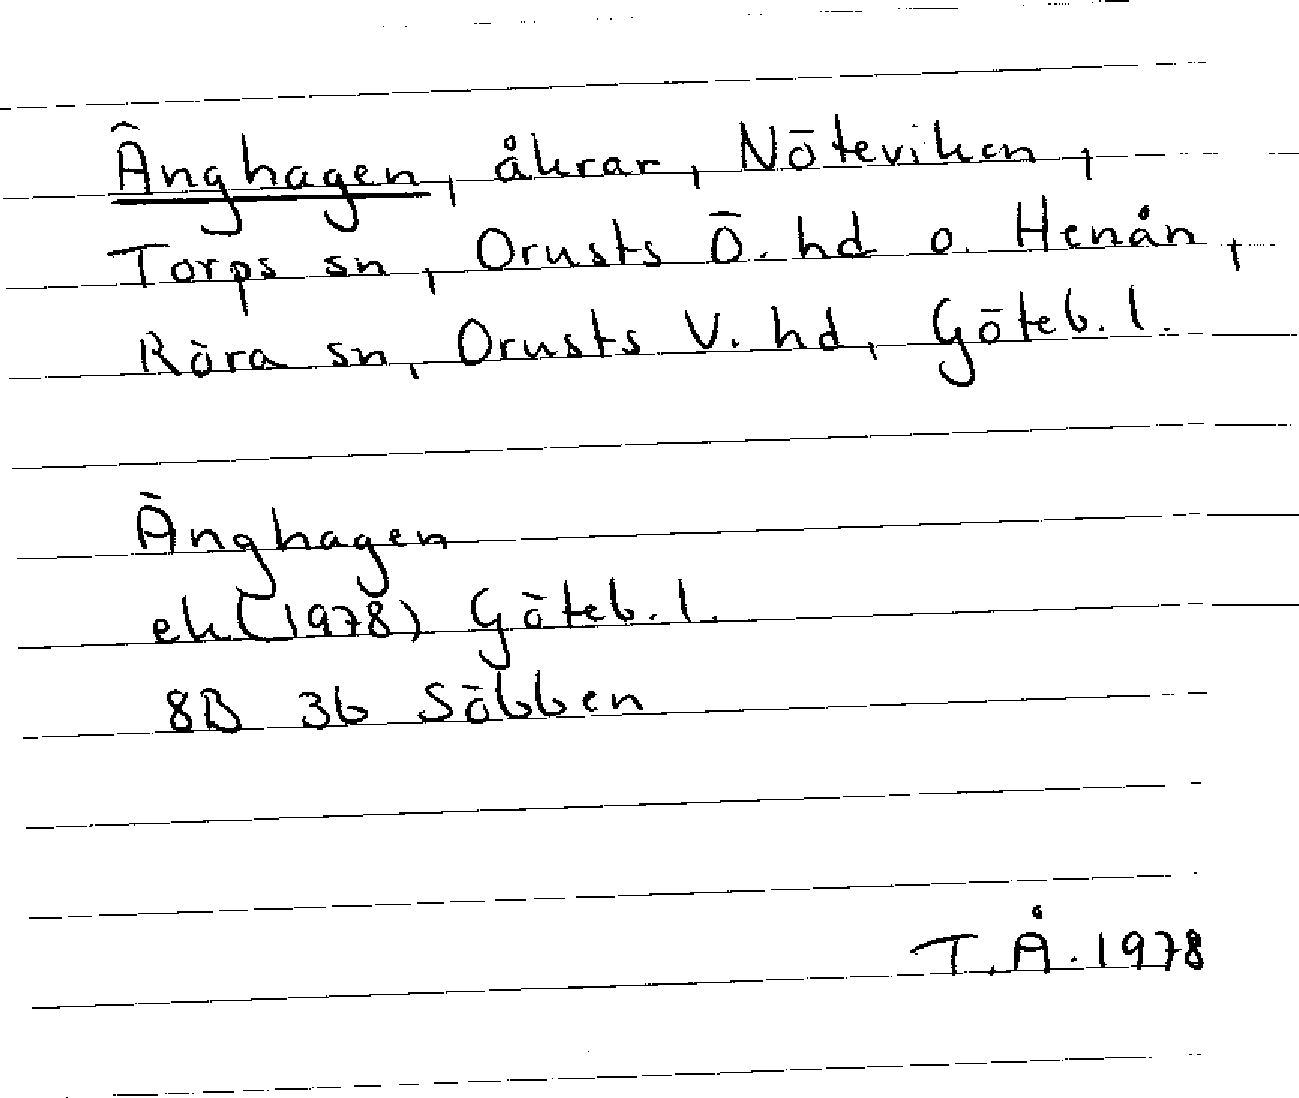 Änghagen, åkrar, Nöteviken,
Torps sn, Orusts Ö. hd o. Henån,
Röra sn, Orusts V. hd, Göteb. l.
Änghagen
ek (1978) Göteb. l.
8B 3b Söbben
T.Å. 1978